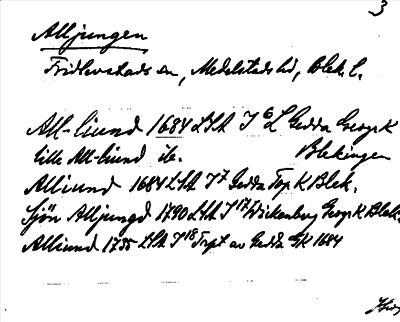 3
Alljungen
Fridlevstads sn, Medelstads hd, Blek. l.
All-liund 1684 LSA I 6 Gedda Geogr K
lille All-liund ib. Blekingen
Alliund 1684 LSA I 7 Gedda Top K Blek.
Sjön Alljungd 1790 LSA I 17 Wickenberg Geogr K Blek.
Alliund 1735 LSA I 18 Trpt av Gedda GK 1684